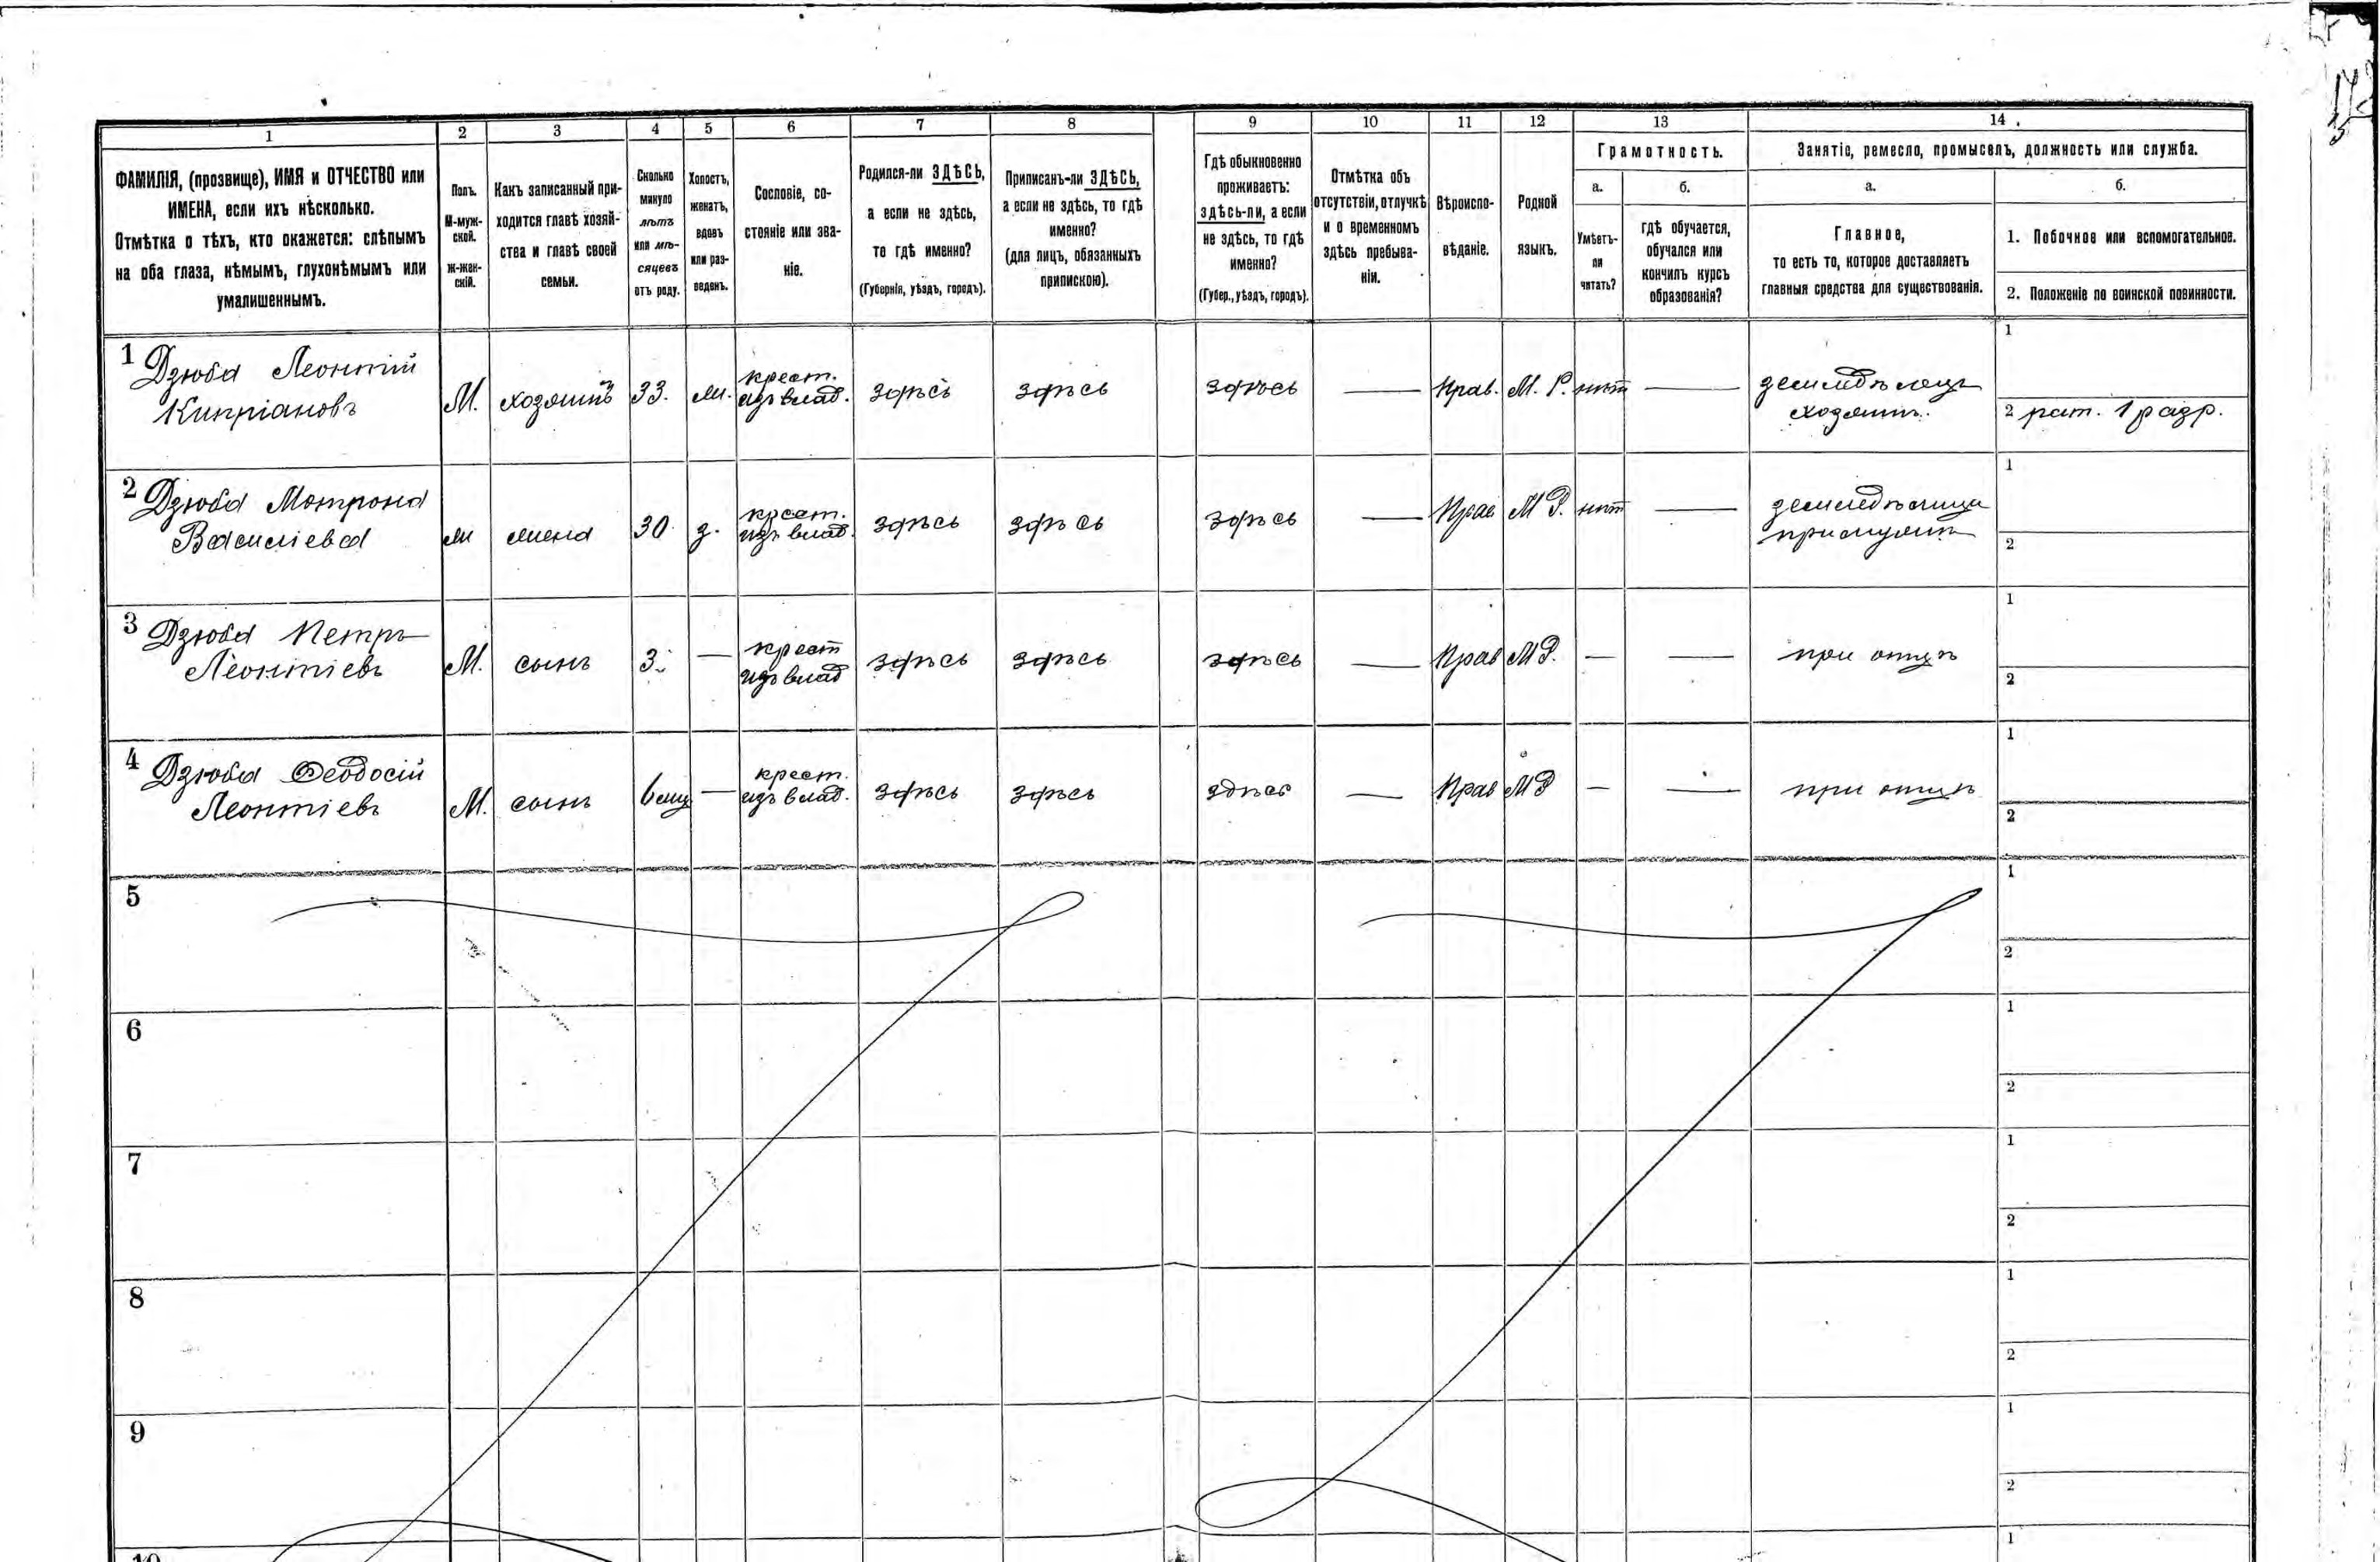 1
2
3
4
5
6
7
8
9
10
11
12
13
14
ФАМИЛІЯ, (прозвище), ИМЯ и ОТЧЕСТВО или
ИМЕНА, если ихъ нѣсколько.
Отмѣтка о тѣхъ, кто окажется: слѣпымъ
на оба глаза, нѣмымъ, глухонѣмымъ или
умалишеннымъ.
Полъ.
М-муж-
ской.
Ж-жен-
скій.
Какъ записанный при-
ходится главѣ хозяй-
ства и главѣ своей
семьи.
Сколько
минуло
лѣтъ
или мѣ-
сяцевъ
отъ роду.
Холостъ,
женатъ,
вдовъ
или раз-
веденъ.
Сословіе, со-
стояніе или зва-
ніе.
Родился-ли ЗДѢСЬ,
а если не здѣсь,
то гдѣ именно?
(Губернія, уѣздъ, городъ).
Приписанъ-ли ЗДѢСЬ,
а если не здѣсь, то гдѣ
именно?
(для лицъ, обязанныхъ
припискою).
Гдѣ обыкновенно
проживаетъ:
здѣсь-ли, а если
не здѣсь, то гдѣ
именно?
(Губер., уѣздъ, городъ).
Отмѣтка объ
отсутствіи, отлучкѣ
и о временномъ
здѣсь пребыва-
ніи.
Вѣроиспо-
вѣданіе.
Родной
языкъ.
Грамотность.
а.
Умѣетъ-
ли
читать?
б.
гдѣ обучается,
обучался или
кончилъ курсъ
образованія?
Занятіе, ремесло, промыселъ, должность или служба.
а.
Главное,
то есть то, которое доставляетъ
главныя средства для существованія.
б.
1. Побочное или вспомогательное.
2. Положеніе по воинской повинности.
1 Дзюба Леонтій
Кипріановъ
М.
хозяинъ
33.
ж.
крест.
изъ влад.
здѣсь
здѣсь
здѣсь
—
Прав.
М. Р.
нѣт
—
земледѣлецъ
хозяинъ.
1
2 рат. 1 разр.
2 Дзюба Мотрона
Василіева
ж
жена
30
з.
крест.
изъ влад.
здѣсь
здѣсь
здѣсь
—
Прав
М Р.
нѣт
—
1
2
3 Дзюба Петръ
Леонтіевъ
М.
сынъ
3
—
крест
изъ влад
здѣсь
здѣсь
здѣсь
—
Прав
М Р.
—
—
при отцѣ
1
2
4 Дзюба Ѳеодосій
Леонтіевъ
М.
сынъ
—
крест.
изъ влад.
здѣсь
здѣсь
здѣсь
—
Прав
М Р
—
—
при отцѣ
1
2
5
1
2
6
1
2
7
1
2
8
1
2
9
1
2
10
1